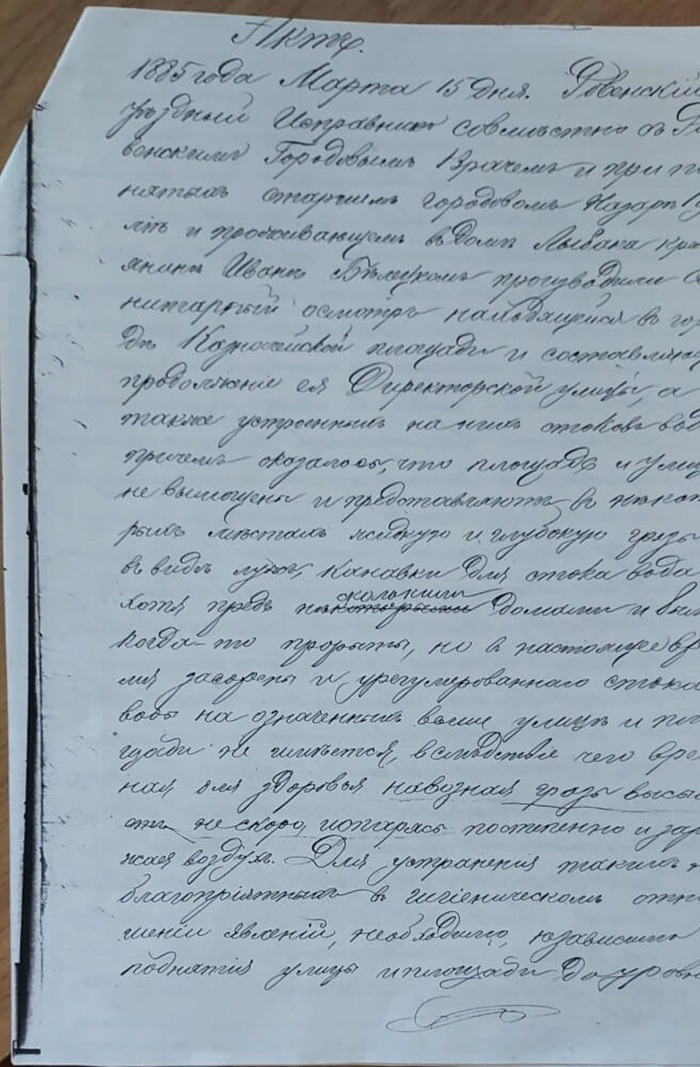 Актъ.
1885 года Марта 15 дня. Ровенскій
уѣздный Исправникъ совмѣстно съ Ро
венскимъ Городовымъ Врачемъ и при по
нятыхъ старшемъ городовомъ Назарѣ
лѣ и проживающемъ въ домѣ Лыбака крест
янинѣ Иванѣ Бѣлецкомъ производили са
нитарный осмотръ находящейся въ горо
дѣ площади и составляющ
продолженіе ея Директорской улицы, а
также устроенныхъ на нихъ стоковъ вод
причемъ оказалось, что площадь и улиц
не вымощены и представляютъ въ нѣкот
рыхъ мѣстахъ жидкую и глубокую грязь
въ видѣ лужъ, канавки для стока воды
хотя предъ нѣкоторыми домами и был
когда-то прорыты, но въ настоящее вре
мя засорены и урегулированнаго стока
воды на означенныхъ выше улицѣ и пло
щади не имѣется, вслѣдствіе чего вред
ная для здоровья навозная грязь высых
етъ не скоро, испаряясь постепенно и зар
жая воздухъ. Для устраненія такихъ не
благопріятныхъ въ гигіеническомъ отно
шеніи явленій, необходимо, независимо
поднятія улицы и площади до уровн